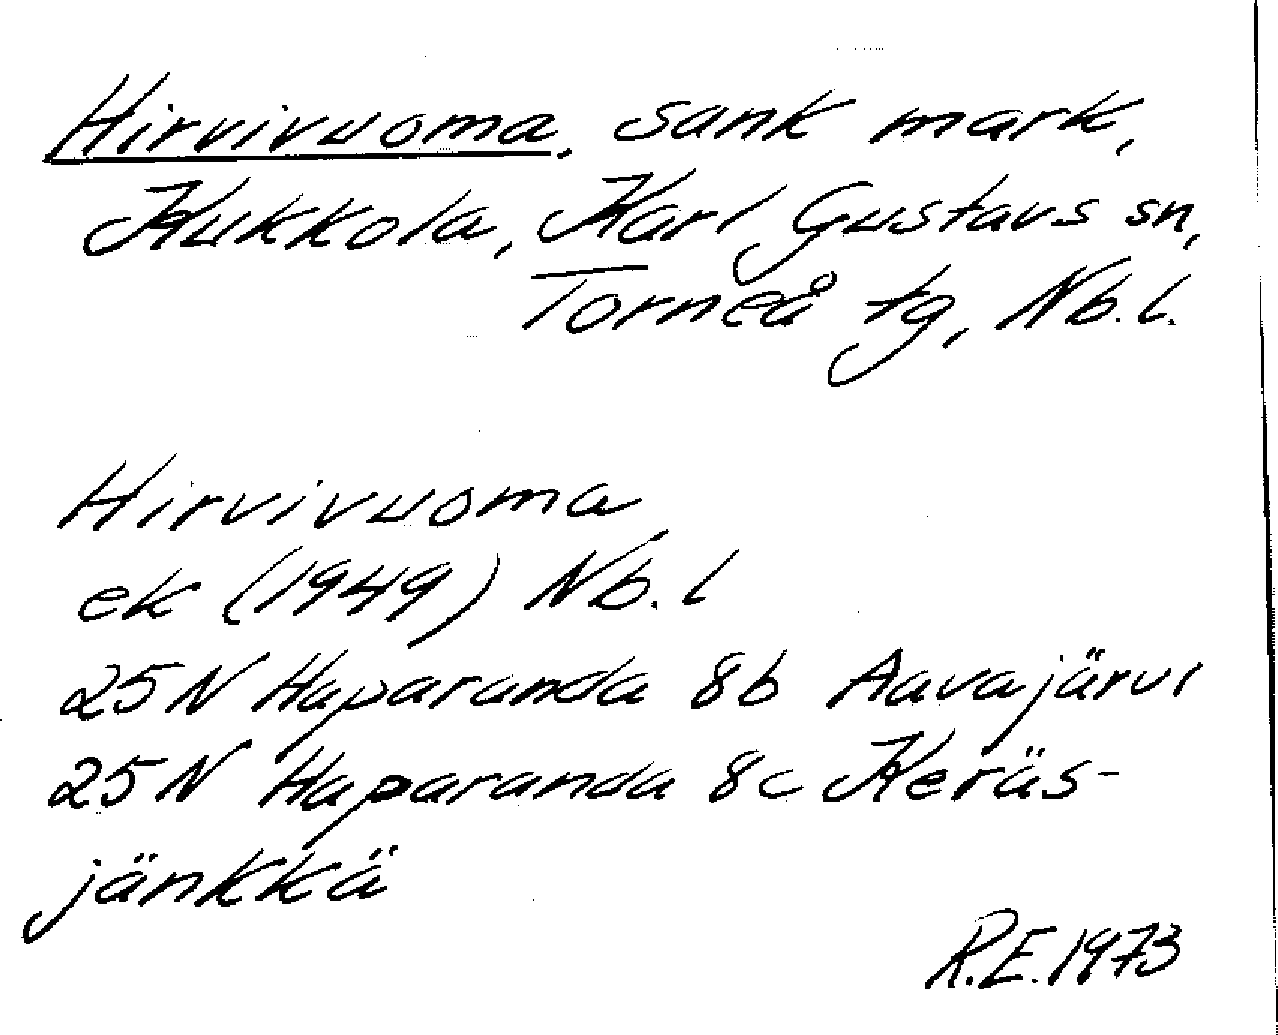 Hirvivuoma, sank mark,
Kukkola, Karl Gustavs sn,
Torneå tg, Nb.l.
Hirvivuoma
ek (1949) Nb.l
25N Haparanda 8b Aavajärvi
25N Haparanda 8c Keräs-
jänkkä
R.E. 1973